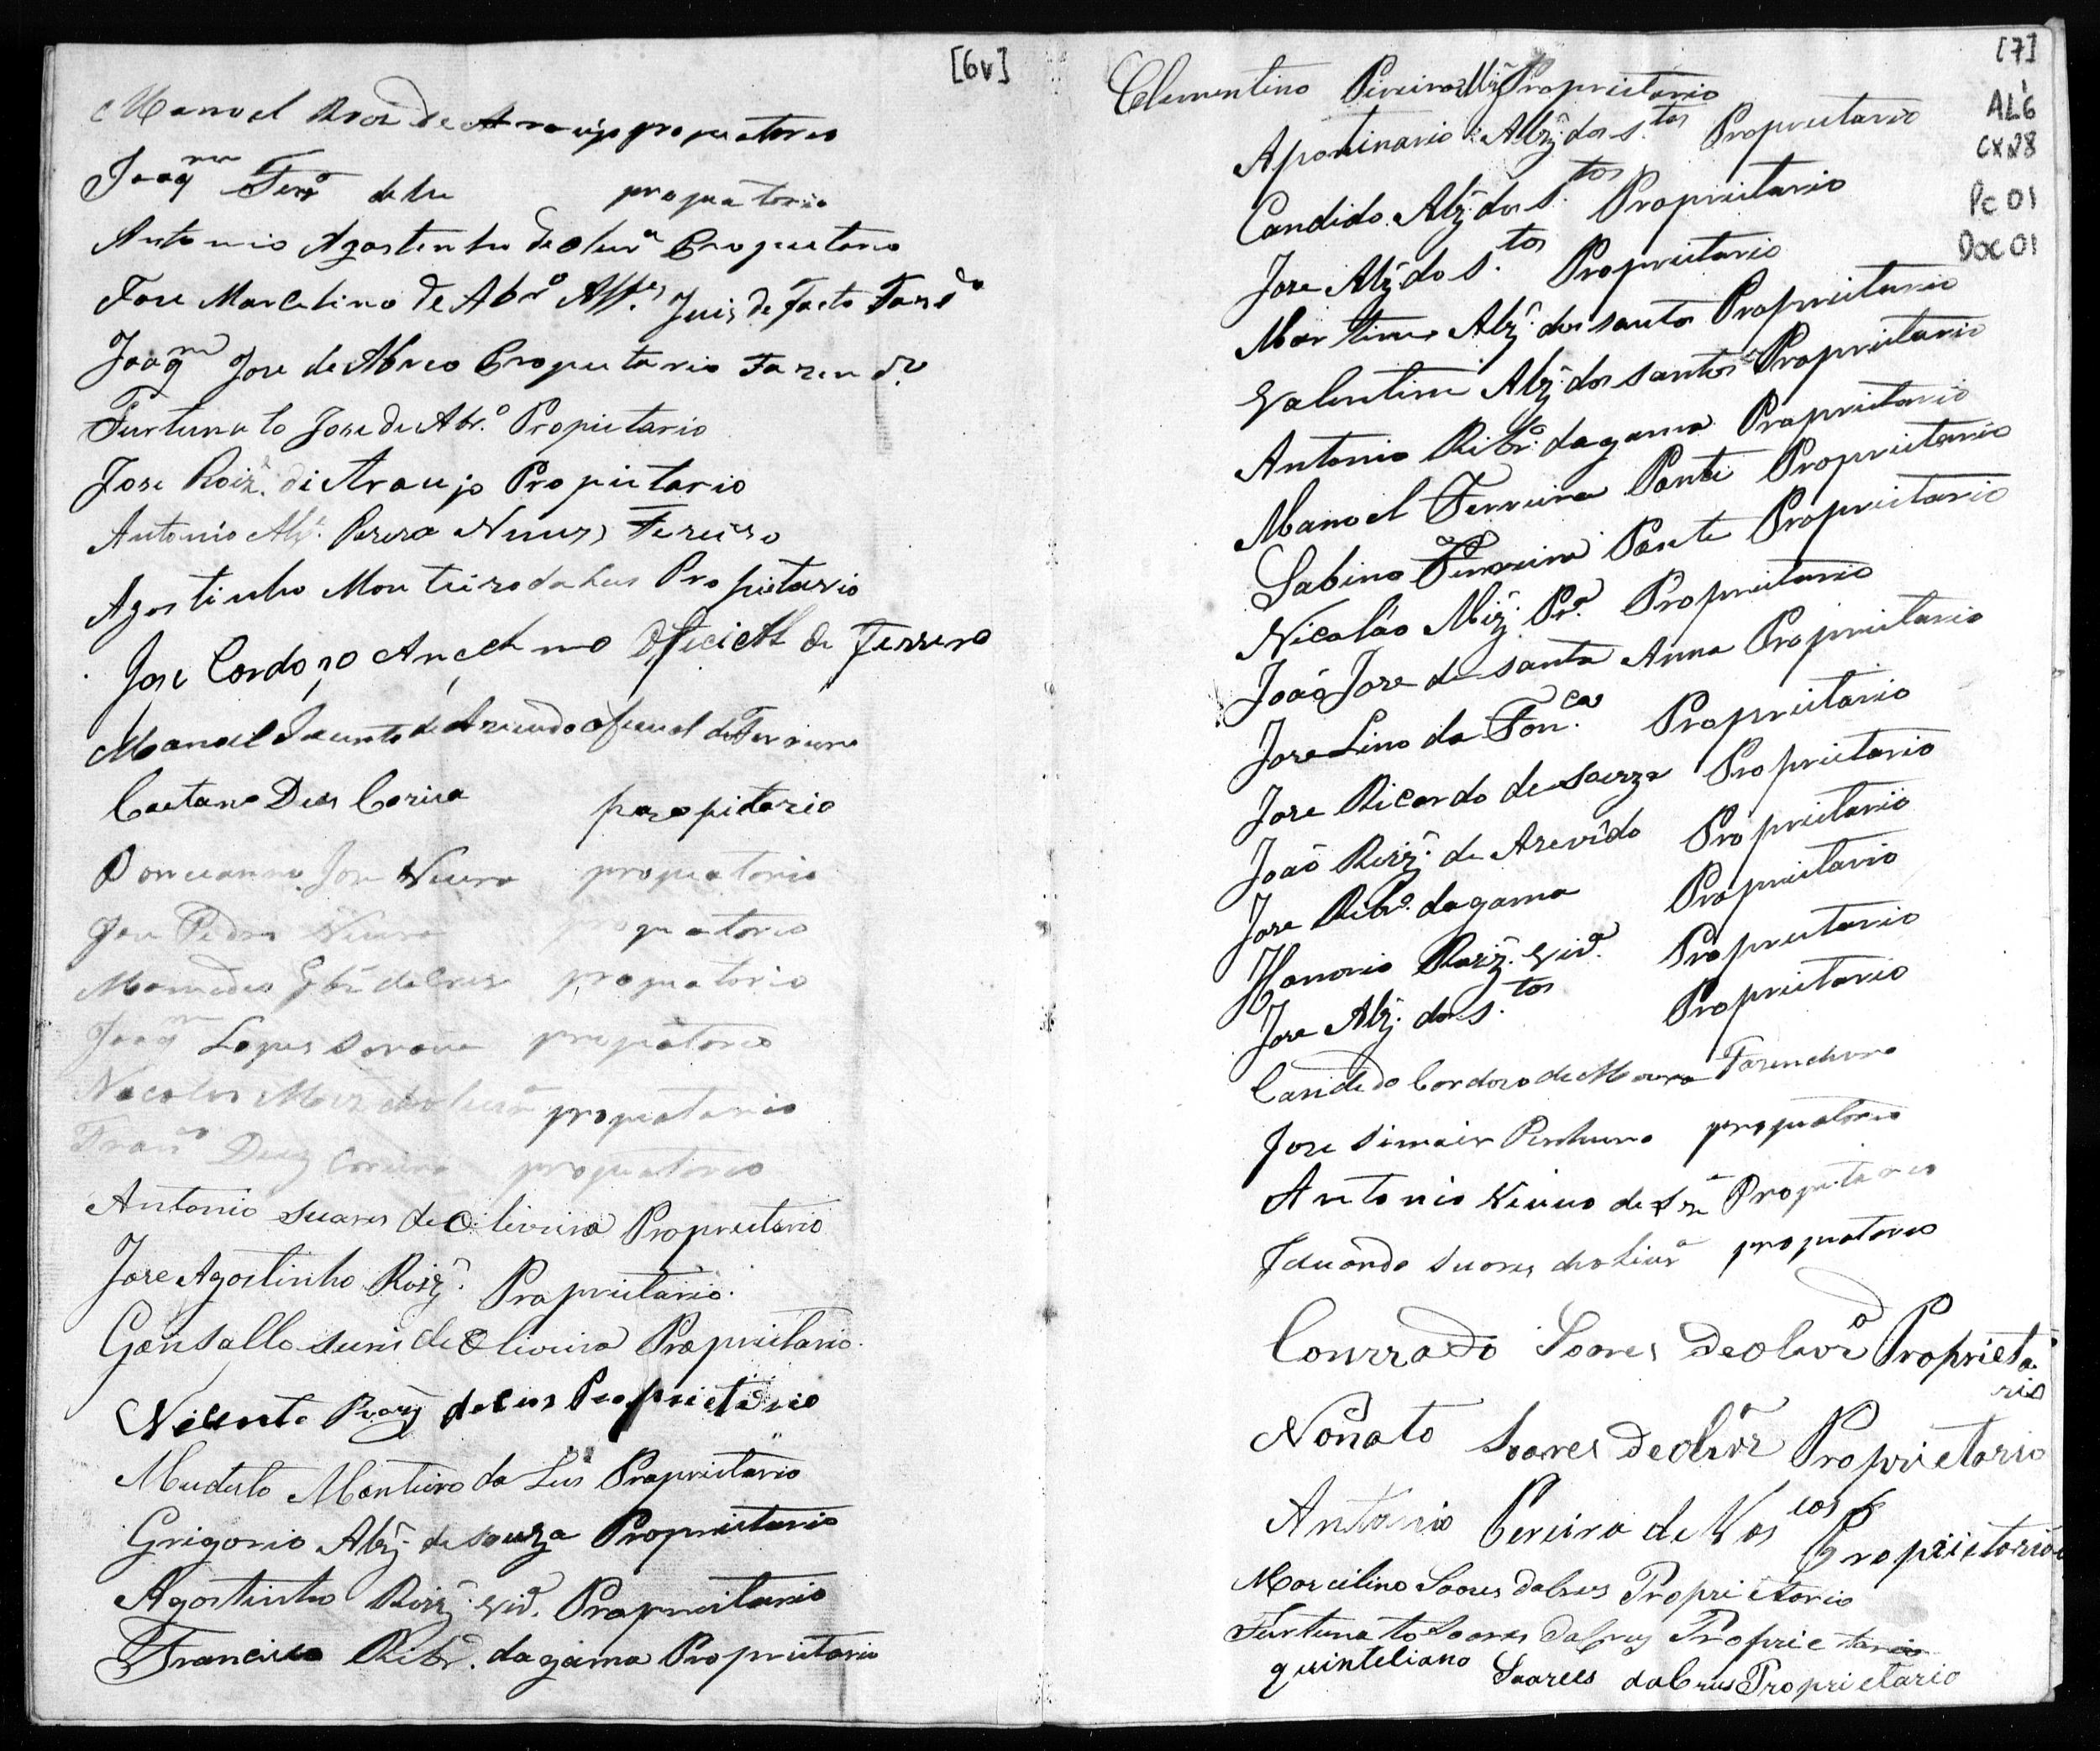 [6v]
Manoel Roiz de Araujo propuatorio
Joaq.m Ferr.a propuatorio
Antonio Agostinho de Oliur.a Propuetario
Jose Marcelino de Abr.o Alf.es Juis de Facto Fasd.o
Joaq.m Jose de Abreo Propuetario Fazend.o
Furtunato Jose de Abr.o Propietario
Jose Roiz. di Araujo Propietario
Antonio Alz. Perera Nunes Fereiro
Agostinho Monteiro da Lus Propietario
Jose Cardozo Ancelmo Oficiel de Ferrero
Manoel Jacinto de Azeuedo ofecial de Ferreiro
Caetano Dias Coriea propitario
Jose Vieira propuatorio
Jose Pedro Vieira propuatorio
Mamedes da Crus propuatorio
Joaq.m Lopes propuatorio
Nacolao propuatario
Fran.co Diaz Coreira propuatorio
Antonio Suares de Oliveira Proprietario
Jose Agostinho Roiz. Proprietario.
Gonsallo Suris de Oliveira Proprietario.
Nicente Roiz da Cus Proprietario
Mudesto Monteiro da Lus Proprietario
Grigorio Alz. de Souza Proprietario
Agostinho Roiz. Vid. Proprietario
Francisco Ribr.o da gama Proprietario
[7]
AL6
CX28
Pc 01
Doc 01
Clementino Pireira Miz Proprietario
Apolinario Alz. dos S.tos Proprietario
Candido Alz. dos S.tos Proprietario
Jose Alz. do S.tos Proprietario
Martins Alz. dos santos Proprietario
Valentim Alz. dos santos Proprietario
Antonio Ribr.o da gama Proprietario
Manoel Ferreira Ponte Proprietario
Sabino Ferreira Ponte Proprietario
Nicoláo Miz. Pr.a Proprietario
João Jose de santa Anna Proprietario
Jose Lino da Fon.ca Proprietario
Jose Ricardo de Souza Proprietario
João Roiz. de Azevêdo Proprietario
Jose Ribr.o da gama Proprietario
Honorio Roiz. Vid.a Proprietario
Jose Alz. dos S.tos Proprietario
Candido Cardozo de Moura Fazendero
Jose Simair Pinheiro propuatorio
Antonio Vieira de Propuitareo
Eduardo Suares propuatorio
Conrrado Soares de Oliur.a Proprieta
rio
Nonato Soares de Olivr.a Proprietario
Antonio Pereira de Vas.cos Propriietario
Marcilino Soares da Crus Proprietario
Furtunato Soares da Cruz Proprietario
quinteliano Soarees da Crus Proprietario